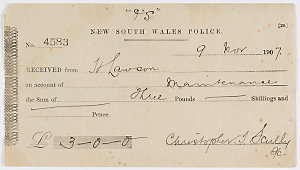 "PS"
NEW SOUTH WALES POLICE.
No. 4583
9 Nov 1907
RECEIVED from H Lawson
on account of Maintenance
the Sum of Three Pounds Shillings and
Pence.
£ 3-0-0
Christopher J. Scully